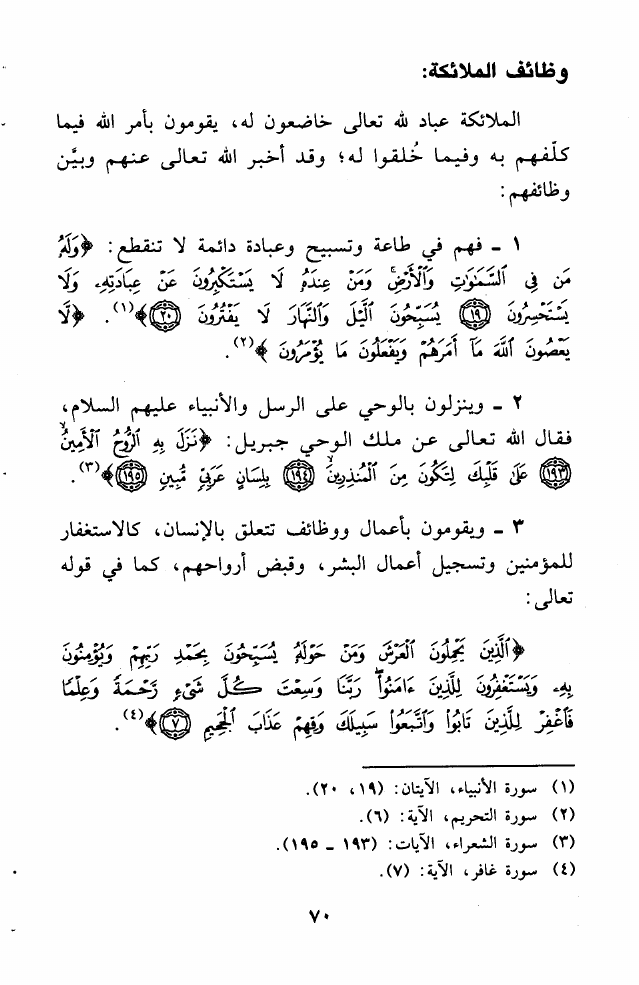 وظائف الملائكة:
الملائكة عباد لله تعالى خاضعون له، يقومون بأمر الله فيما
كلّفهم به وفيما خُلقوا له؛ وقد أخبر الله تعالى عنهم وبيَّن
وظائفهم:
١ ـ فهم في طاعة وتسبيح وعبادة دائمة لا تنقطع: ﴿وَلَهُۥ
مَن فِي ٱلسَّمَٰوَٰتِ وَٱلْأَرْضِۚ وَمَنْ عِندَهُۥ لَا يَسْتَكْبِرُونَ عَنْ عِبَادَتِهِۦ وَلَا
يَسْتَحْسِرُونَ ١٩ يُسَبِّحُونَ ٱلَّيْلَ وَٱلنَّهَارَ لَا يَفْتُرُونَ ٢٠﴾(١). ﴿لَّا
يَعْصُونَ ٱللَّهَ مَآ أَمَرَهُمْ وَيَفْعَلُونَ مَا يُؤْمَرُونَ﴾(٢).
٢ ـ وينزلون بالوحي على الرسل والأنبياء عليهم السلام،
فقال الله تعالى عن ملك الوحي جبريل: ﴿نَزَلَ بِهِ ٱلرُّوحُ ٱلْأَمِينُ
١٩٣ عَلَىٰ قَلْبِكَ لِتَكُونَ مِنَ ٱلْمُنذِرِينَ ١٩٤ بِلِسَانٍ عَرَبِيٍّ مُّبِينٍ ١٩٥﴾(٣).
٣ ـ ويقومون بأعمال ووظائف تتعلق بالإنسان، كالاستغفار
للمؤمنين وتسجيل أعمال البشر، وقبض أرواحهم، كما في قوله
تعالى:
﴿ٱلَّذِينَ يَحْمِلُونَ ٱلْعَرْشَ وَمَنْ حَوْلَهُۥ يُسَبِّحُونَ بِحَمْدِ رَبِّهِمْ وَيُؤْمِنُونَ
بِهِۦ وَيَسْتَغْفِرُونَ لِلَّذِينَ ءَامَنُوا۟ رَبَّنَا وَسِعْتَ كُلَّ شَىْءٍ رَّحْمَةً وَعِلْمًا
فَٱغْفِرْ لِلَّذِينَ تَابُوا۟ وَٱتَّبَعُوا۟ سَبِيلَكَ وَقِهِمْ عَذَابَ ٱلْجَحِيمِ ٧﴾(٤).
(١) سورة الأنبياء، الآيتان: (١٩، ٢٠).
(٢) سورة التحريم، الآية: (٦).
(٣) سورة الشعراء، الآيات: (١٩٣ ـ ١٩٥).
(٤) سورة غافر، الآية: (٧).
٧٠